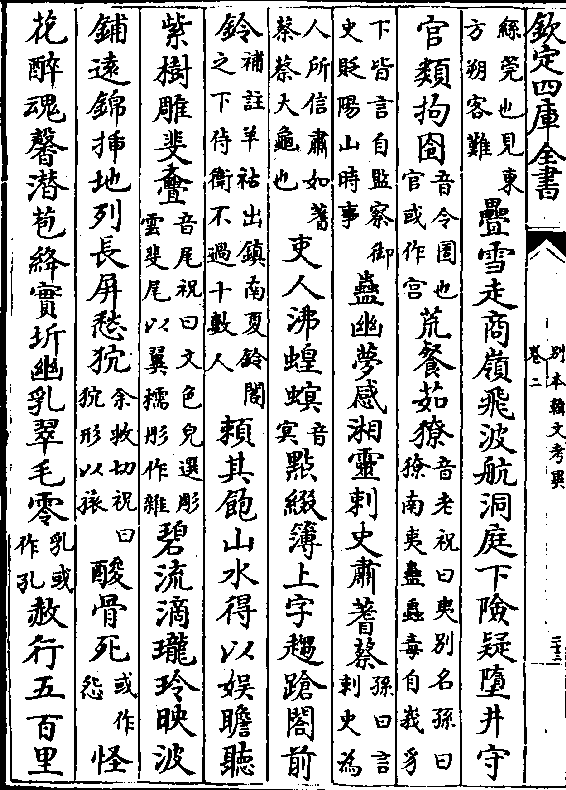 欽定四庫全書
別本韓文考異
卷二
絲筦也見東
方朔客難
疊雪走商嶺飛波航洞庭下險疑墮井守
官類拘囹
音令圄也
官或作宫
荒餐茹獠
音老祝曰夷別名孫曰
獠南夷蠱蟲毒自峩豸
下皆言自監察御
史貶陽山時事
蠱幽夢感湘靈刺史肅蓍蔡
孫曰言
刺史為
人所信肅如蓍
蔡蔡大龜也
吏人沸蝗螟
音
冥
點綴簿上字趨蹌閤前
鈴
補註羊祜出鎮南夏鈴閤
之下侍衛不過十數人
賴其飽山水得以娛瞻聽
紫樹雕斐亹
音尾祝曰文色皃選彫
雲斐尾以翼檽彤作雜
碧流滴瓏玲映波
鋪遠錦揷地列長屏愁狖
余救切祝曰
狖形以猿
酸骨死
或作
怨
怪
花醉魂馨潛苞絳實坼幽乳翠毛零
乳或
作孔
赦行五百里